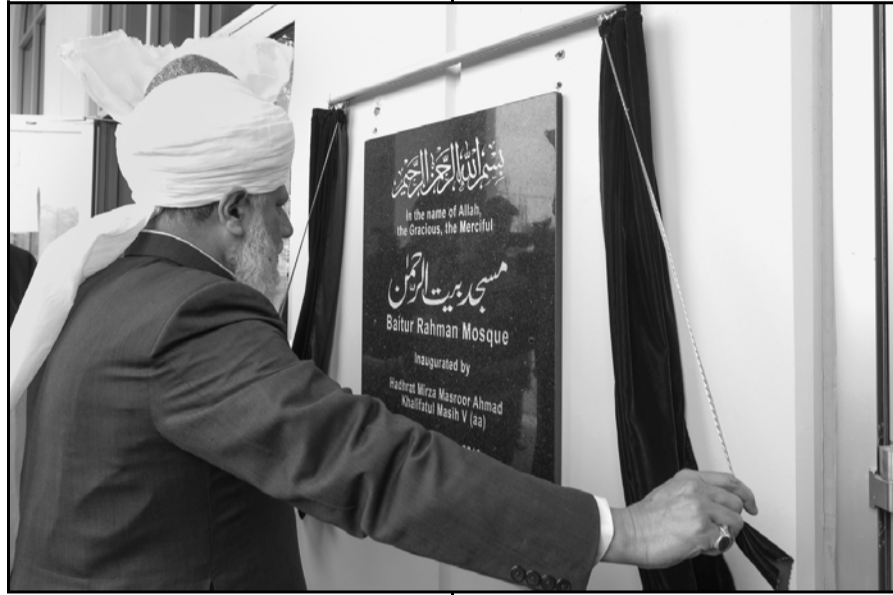 بسم اللہ الرحمن الرحیم
In the name of Allah,
the Gracious, the Merciful
مسجد بیت الرحمن
Baitur Rahman Mosque
Inaugurated by
Hadhrat Mirza Masroor Ahmad
Khalifatul Masih V (aa)